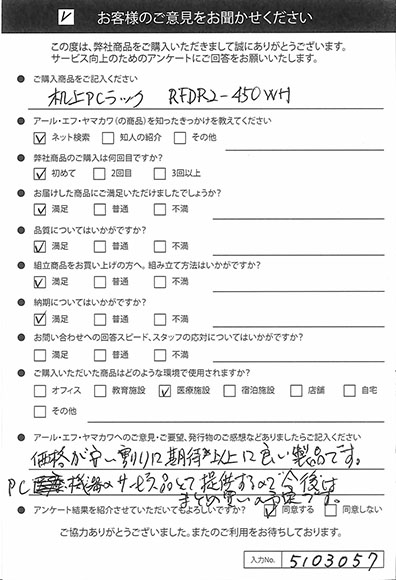 ☑ お客様のご意見をお聞かせください
この度は、弊社商品をご購入いただきまして誠にありがとうございます。
サービス向上のためのアンケートにご回答をお願いいたします。
● ご購入商品をご記入ください
机上PCラック RFDR2-450WH
● アール・エフ・ヤマカワ(の商品)を知ったきっかけを教えてください
☑ ネット検索 □ 知人の紹介 □ その他
● 弊社商品のご購入は何回目ですか?
☑ 初めて □ 2回目 □ 3回以上
● お届けした商品にご満足いただけましたでしょうか?
☑ 満足 □ 普通 □ 不満
● 品質についてはいかがですか?
☑ 満足 □ 普通 □ 不満
● 組立商品をお買い上げの方へ。組み立て方法はいかがですか?
☑ 満足 □ 普通 □ 不満
● 納期についてはいかがですか?
☑ 満足 □ 普通 □ 不満
● お問い合わせへの回答スピード、スタッフの応対についてはいかがですか?
□ 満足 □ 普通 □ 不満
● ご購入いただいた商品はどのような環境で使用されますか?
□ オフィス □ 教育施設 ☑ 医療施設 □ 宿泊施設 □ 店舗 □ 自宅
□ その他
● アール・エフ・ヤマカワへのご意見・ご要望、発行物のご感想などありましたらご記入ください
価格が安い割りに期待以上に良い製品です。
PC機器のサービス品として提供するので今後は
まとめ買いの予定です。
● アンケート結果を紹介させていただいてもよろしいですか? ☑ 同意する □ 同意しない
ご協力ありがとうございました。またのご利用をお待ちしております。
入力No. 5103057